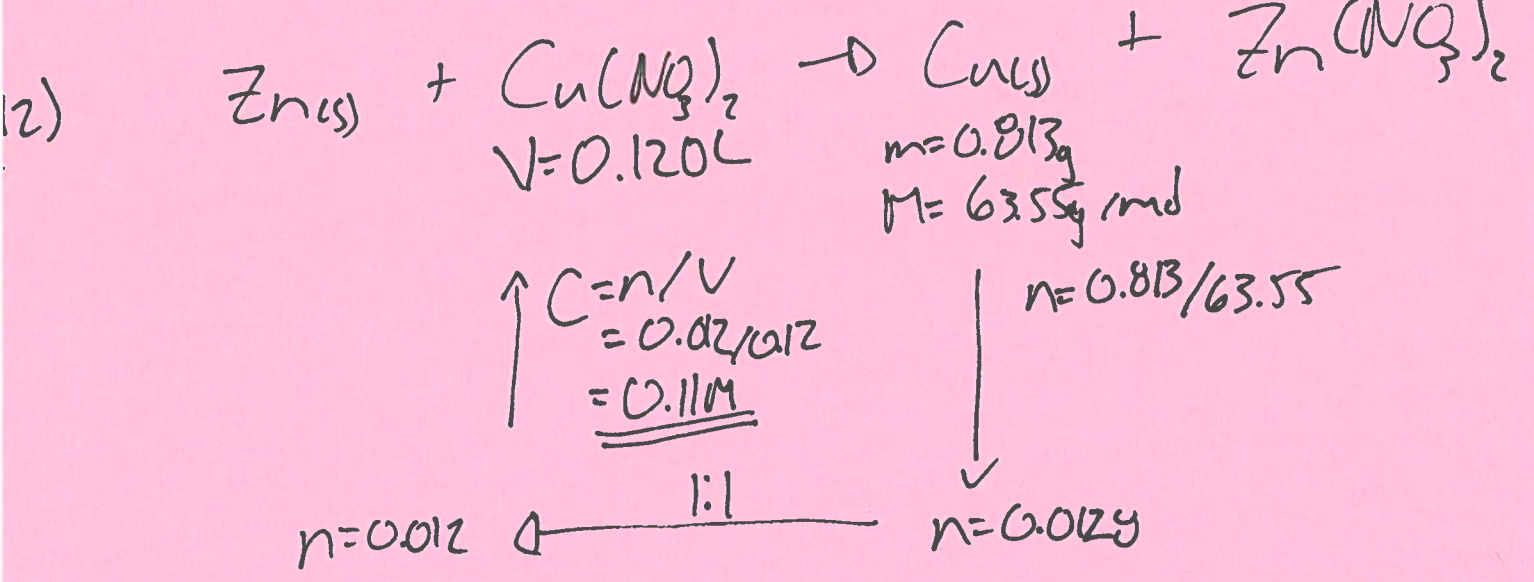 12) Zn(s) + Cu(NO₃)₂ → Cu(s) + Zn(NO₃)₂
V=0.120L
m=0.813g
M=63.55g/mol
C=n/V
=0.012/0.12
=0.11M
n=0.813/63.55
1:1
n=0.012
n=0.0128